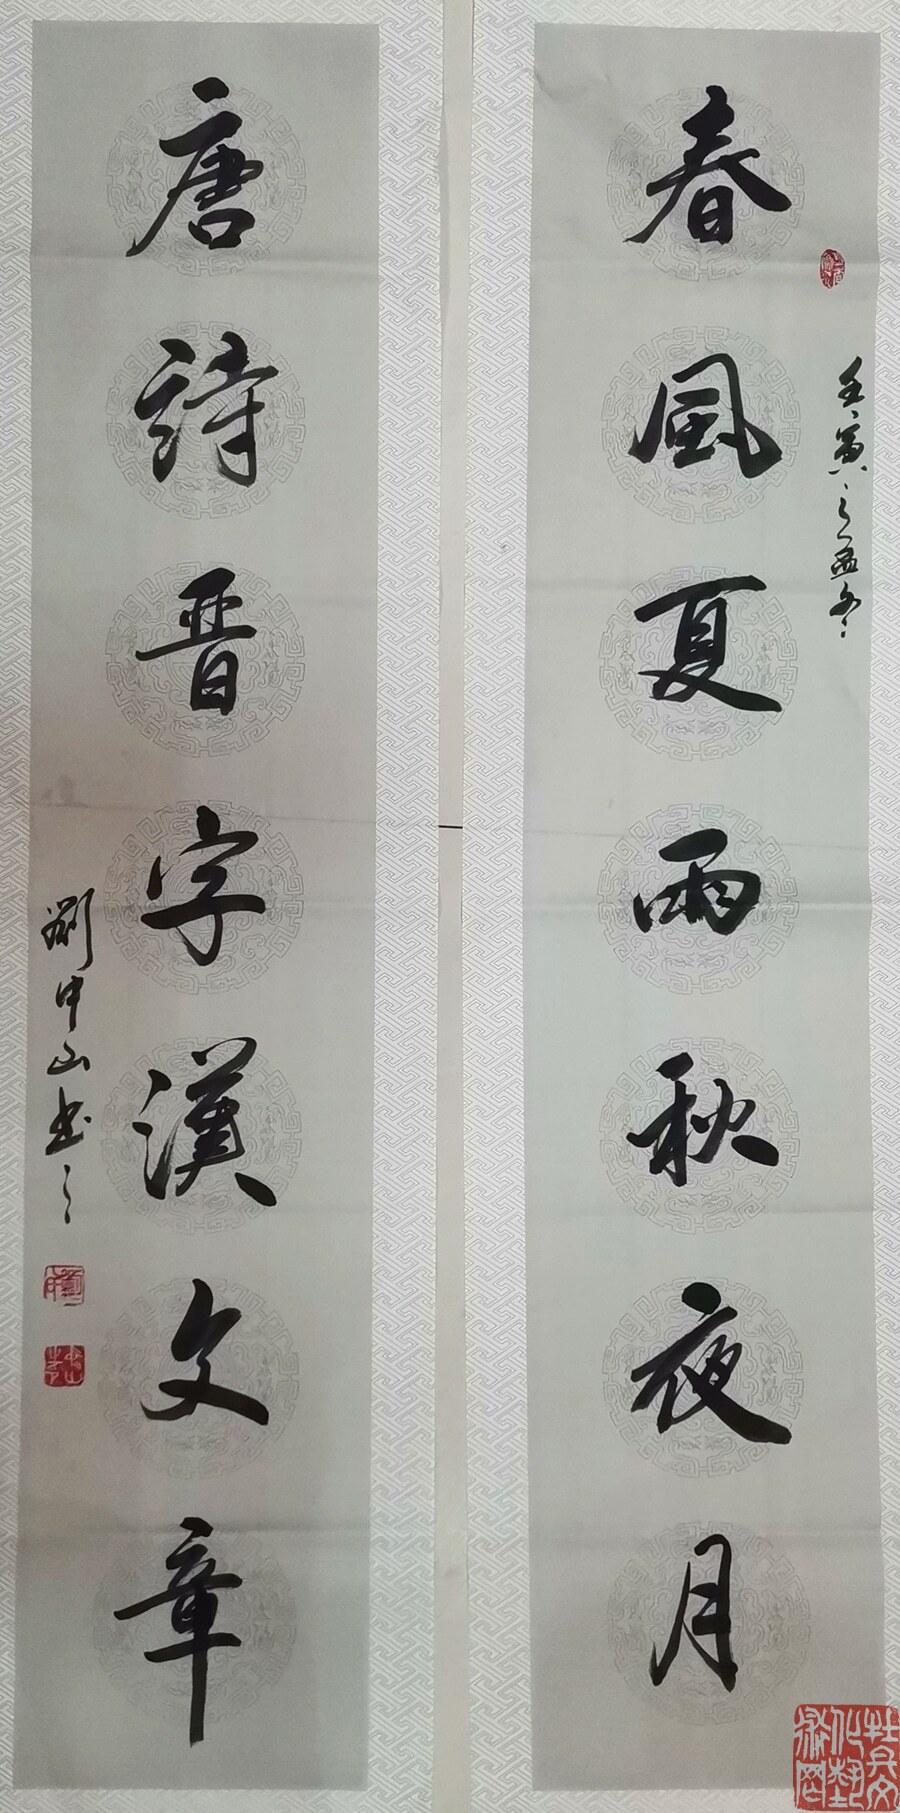 春風夏雨秋夜月
壬寅之孟冬
唐詩晋字漢文章
劉中山書